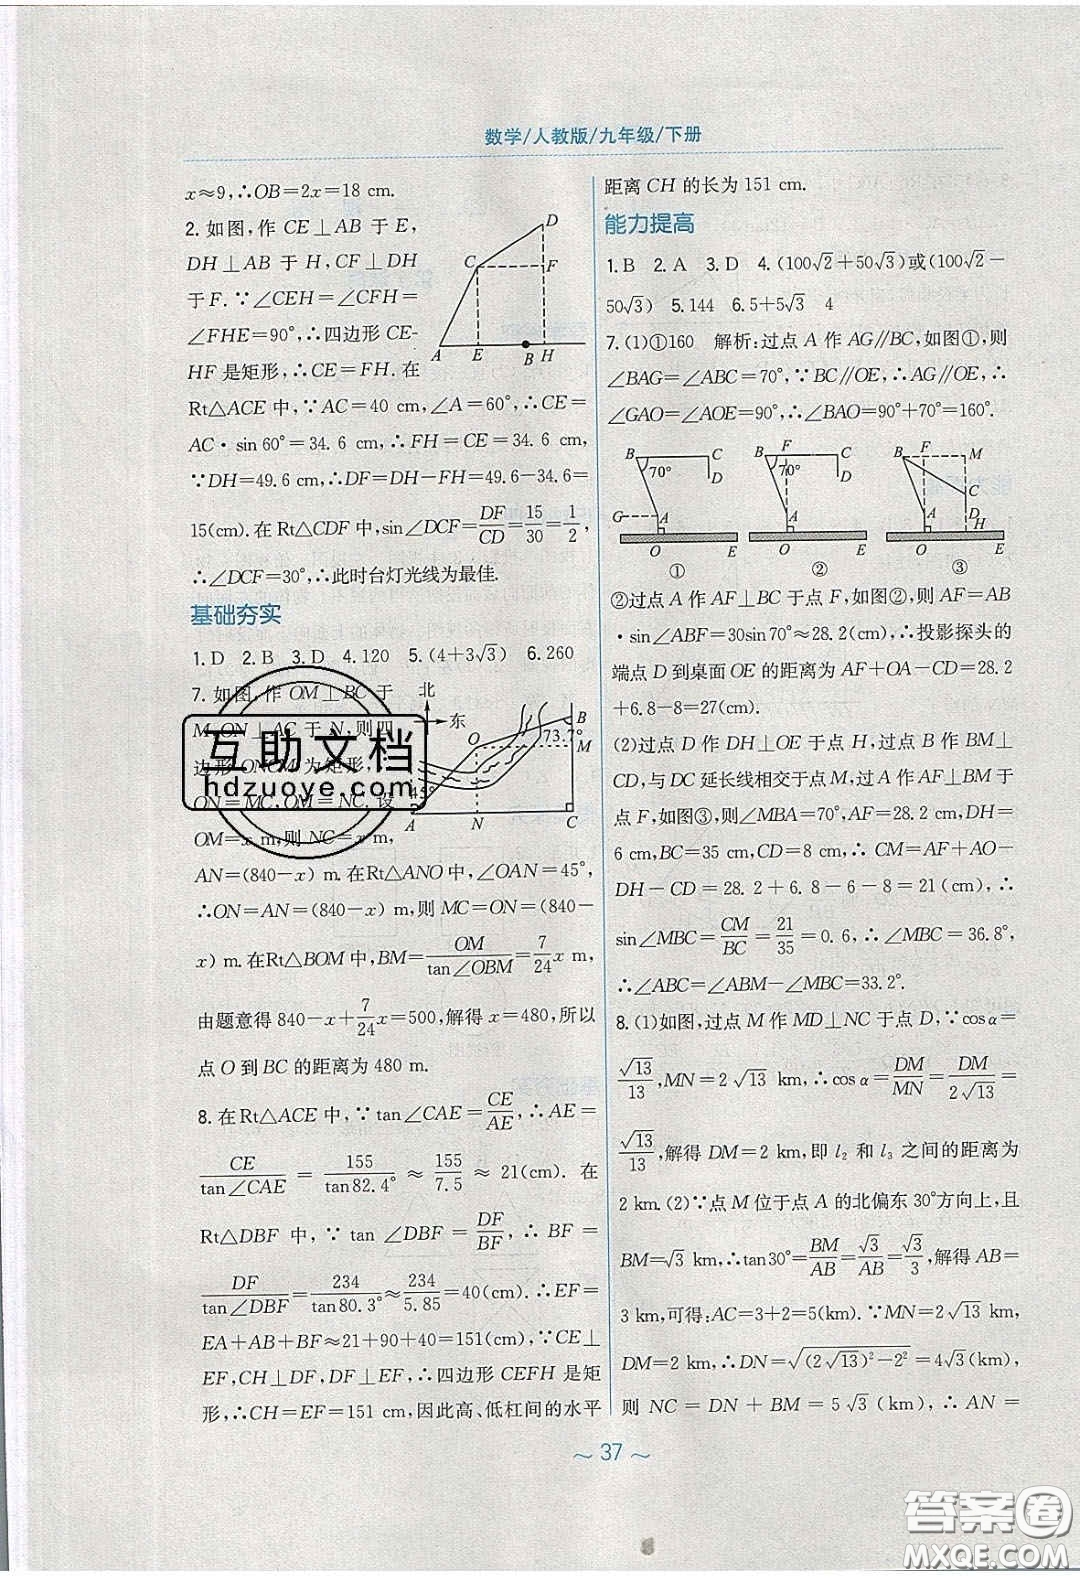 数学/人教版/九年级/下册
x≈9,∴OB=2x=18 cm.
2.如图,作 CE⊥AB 于 E,
DH⊥AB 于 H,CF⊥DH
于 F.∵∠CEH=∠CFH=
∠FHE=90°,∴四边形 CE-
HF 是矩形,∴CE=FH.在
Rt△ACE 中,∵AC=40 cm,∠A=60°,∴CE=
AC·sin 60°=34.6 cm,∴FH=CE=34.6 cm,
∵DH=49.6 cm,∴DF=DH-FH=49.6-34.6=
15(cm).在 Rt△CDF 中,sin∠DCF=DF/CD=15/30=1/2,
∴∠DCF=30°,∴此时台灯光线为最佳.
D
C
F
A E B H
基础夯实
1.D 2.B 3.D 4.120 5.(4+3√3) 6.260
7.如图,作 OM⊥BC 于
M,ON⊥AC 于 N,则四
边形 ONCM 为矩形,
ON=MC,OM=NC.设
OM=x m,则 NC=x m,
AN=(840-x) m.在Rt△ANO 中,∠OAN=45°,
∴ON=AN=(840-x) m,则 MC=ON=(840-
x) m.在Rt△BOM 中,BM=OM/tan∠OBM=7/24 x m,
由题意得 840-x+7/24 x=500,解得 x=480,所以
点 O 到 BC 的距离为 480 m.
北
东
B
73.7°
O M
45°
A N C
8.在Rt△ACE 中,∵tan∠CAE=CE/AE,∴AE=
CE/tan∠CAE = 155/tan82.4° ≈ 155/7.5 ≈ 21(cm). 在
Rt△DBF 中,∵tan ∠DBF = DF/BF, ∴ BF =
DF/tan∠DBF=234/tan80.3°≈234/5.85=40(cm).∴EF=
EA+AB+BF≈21+90+40=151(cm),∵CE⊥
EF,CH⊥DF,DF⊥EF,∴四边形 CEFH 是矩
形,∴CH=EF=151 cm,因此高、低杠间的水平
距离 CH 的长为 151 cm.
能力提高
1.B 2.A 3.D 4.(100√2+50√3)或(100√2-
50√3) 5.144 6.5+5√3 4
7.(1)①160 解析:过点 A 作 AG∥BC,如图①,则
∠BAG=∠ABC=70°,∵BC∥OE,∴AG∥OE,∴
∠GAO=∠AOE=90°,∴∠BAO=90°+70°=160°.
B C
70° D
G A
O E
①
B F C
70° D
A
O E
②
B F M
C
A D
H
O E
③
②过点 A 作 AF⊥BC 于点 F,如图②,则 AF=AB
·sin∠ABF=30sin70°≈28.2(cm),∴投影探头的
端点 D 到桌面 OE 的距离为 AF+OA-CD=28.2
+6.8-8=27(cm).
(2)过点 D 作 DH⊥OE 于点 H,过点 B 作 BM⊥
CD,与 DC 延长线相交于点 M,过点 A 作 AF⊥BM 于
点 F,如图③,则∠MBA=70°,AF=28.2 cm,DH=
6 cm,BC=35 cm,CD=8 cm,∴ CM=AF+AO-
DH-CD=28.2+6.8-6-8=21(cm),∴
sin∠MBC=CM/BC=21/35=0.6,∴∠MBC=36.8°,
∴∠ABC=∠ABM-∠MBC=33.2°.
8.(1)如图,过点 M 作 MD⊥NC 于点 D,∵cosα=
√13/13,MN=2√13 km,∴cosα=DM/MN=DM/2√13=
√13/13,解得 DM=2 km,即 l₂ 和 l₃ 之间的距离为
2 km.(2)∵点 M 位于点 A 的北偏东 30°方向上,且
BM=√3 km,∴tan30°=BM/AB=√3/AB=√3/3,解得 AB=
3 km,可得:AC=3+2=5(km).∵MN=2√13 km,
DM=2 km,∴DN=√((2√13)²-2²)=4√3(km),
则 NC=DN+BM=5√3(km),∴AN=
~ 37 ~
互助文档
hdzuoye.com
答案圈
MXQE.COM